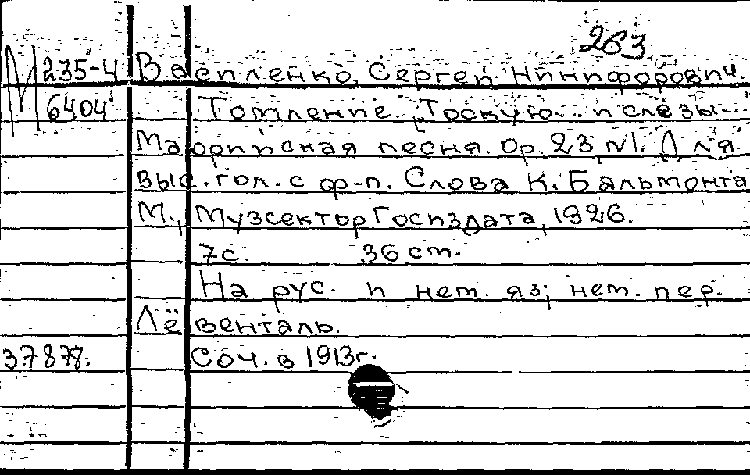 263
М 235-4 Василенко, Сергей Никифорович.
6404 Томление. „Тоскую... и слёзы...
Маорийская песня. Op. 23 №1. Для
выс. гол. с ф-п. Слова К. Бальмонта
М., Музсектор Госиздата, 1926.
7с. 36 cm.
На рус. и нем. яз; нем. пер.
Лёвенталь.
37878. Соч. в 1913г.